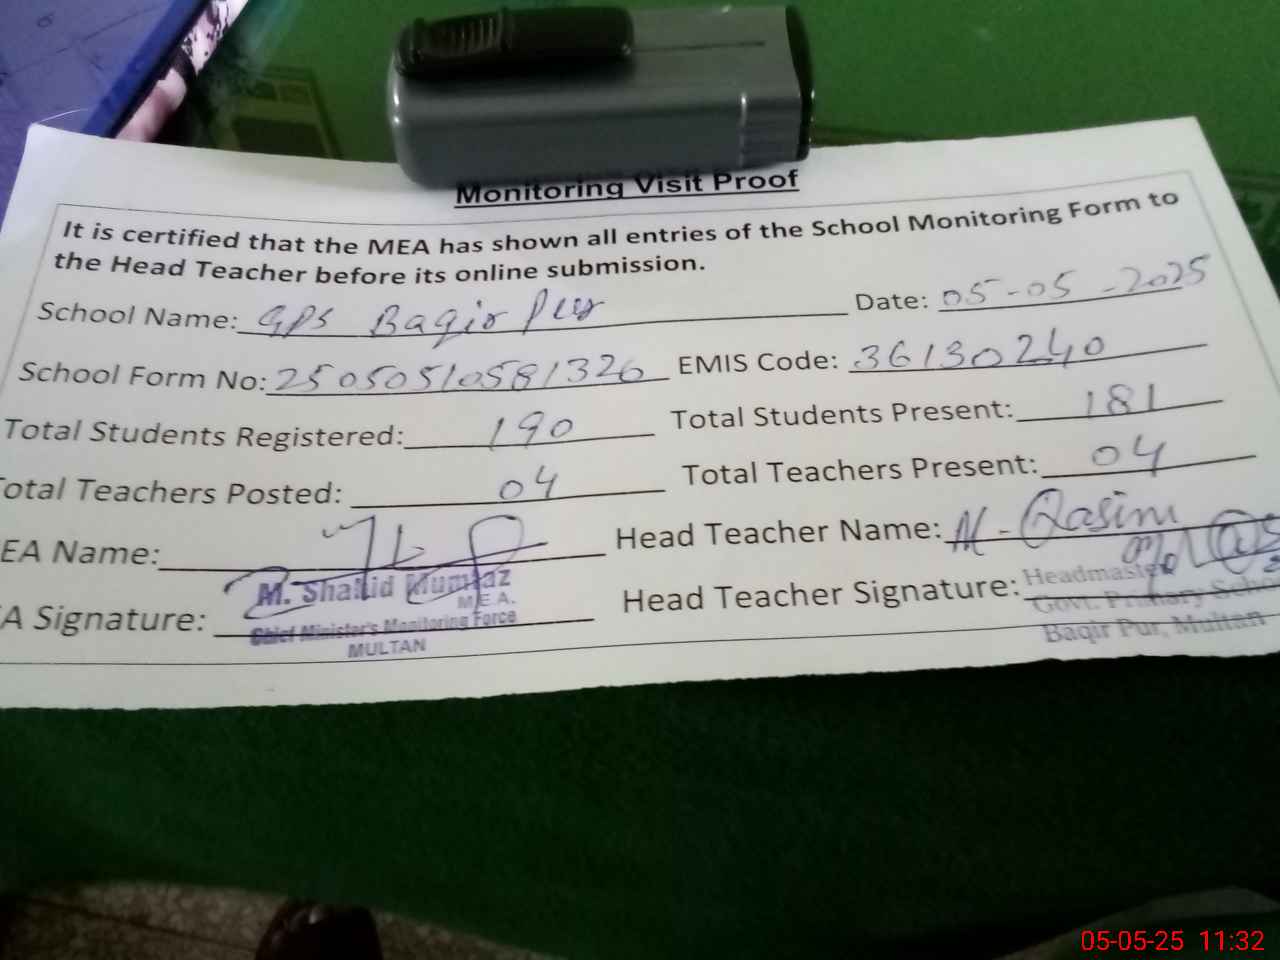 Monitoring Visit Proof
It is certified that the MEA has shown all entries of the School Monitoring Form to
the Head Teacher before its online submission.
School Name: GPS Baqir Pur Date: 05-05-2025
School Form No: 25050510581326 EMIS Code: 36130240
Total Students Registered: 190 Total Students Present: 181
Total Teachers Posted: 04 Total Teachers Present: 04
EA Name: Head Teacher Name: M-Qasim
M. Shahid Mumtaz
M.E.A.
A Signature: Head Teacher Signature: Headmaster
Chief Minister's Monitoring Force Govt. Primary Schoo
MULTAN Baqir Pur, Multan
05-05-25 11:32